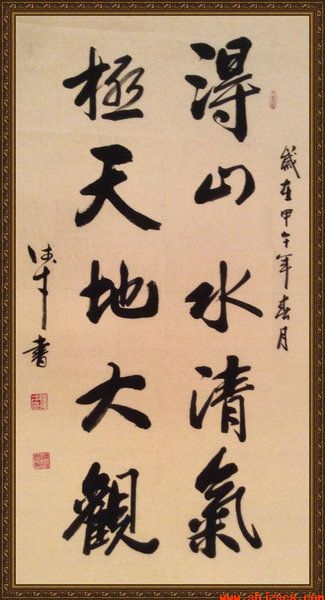 歲在甲午年春月
得山水清氣
極天地大觀
書